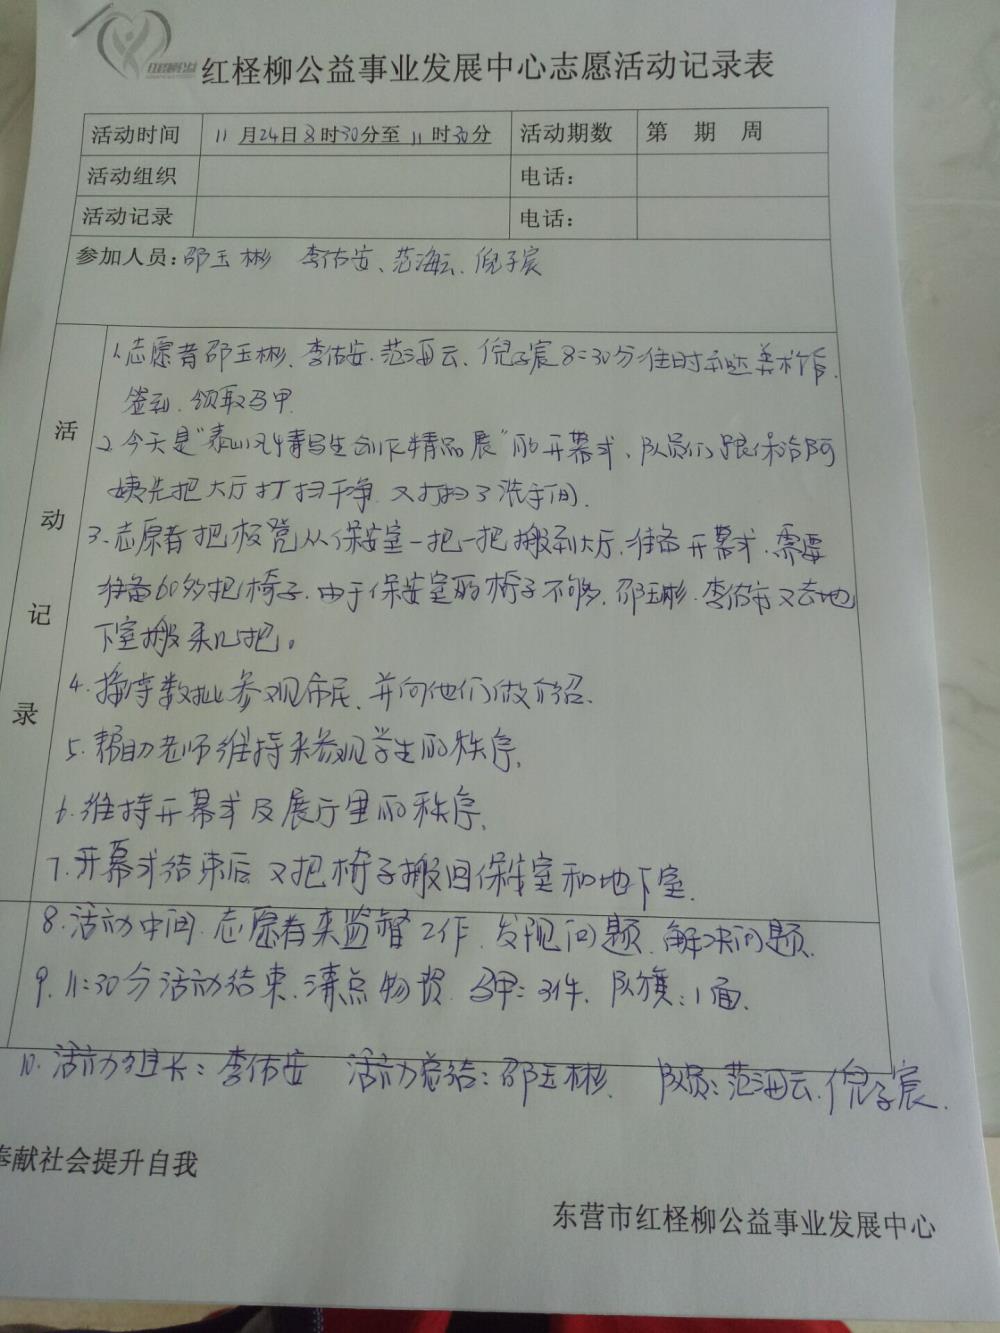 红柽柳公益
红柽柳公益事业发展中心志愿活动记录表
活动时间 11月24日8时30分至11时30分 活动期数 第 期 周
活动组织 电话:
活动记录 电话:
参加人员:邵玉彬 李佑安、范海云、倪子宸
活动记录
1.志愿者邵玉彬、李佑安.范海云、倪子宸8:30分准时到达美术馆.
签到.领取马甲.
2.今天是"泰山风情写生创作精品展"的开幕式、队员们跟保洁阿
姨先把大厅打扫干净.又打扫了洗手间.
3.志愿者把板凳从保安室一把一把搬到大厅.准备开幕式.需要
准备60多把椅子.由于保安室的椅子不够.邵玉彬.李佑安又去地
下室搬来几把。
4.接待数批参观市民、并向他们做介绍.
5.帮助老师维持来参观学生的秩序.
6.维持开幕式及展厅里的秩序.
7.开幕式结束后又把椅子搬回保安室和地下室.
8.活动中间.志愿者来监督工作.发现问题.解决问题.
9.11:30分活动结束.清点物资.马甲:3件.队旗:1面.
10.活动组长:李佑安 活动总结:邵玉彬. 队员:范海云.倪子宸.
奉献社会提升自我
东营市红柽柳公益事业发展中心